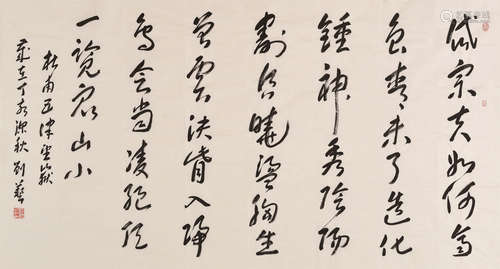 岱宗夫如何齊
魯青未了造化
鍾神秀陰陽
割昏曉盪胸生
曾雲決眥入歸
鳥會當凌絕頂
一覽眾山小
杜甫五律望嶽
歲在丁亥深秋劉藝